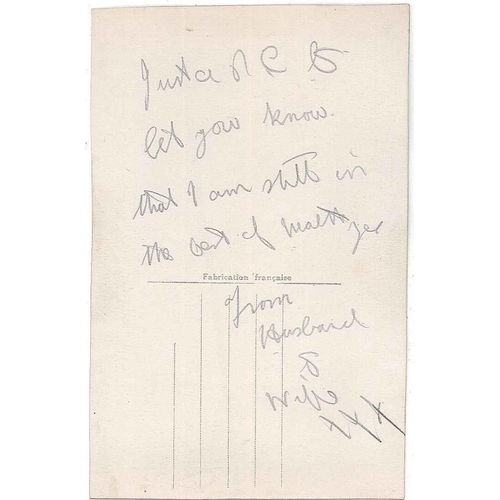 Just a P C to
let you know
that I am still in
the best of health yet
Fabrication française
From
Husband
to
Wife
XXX